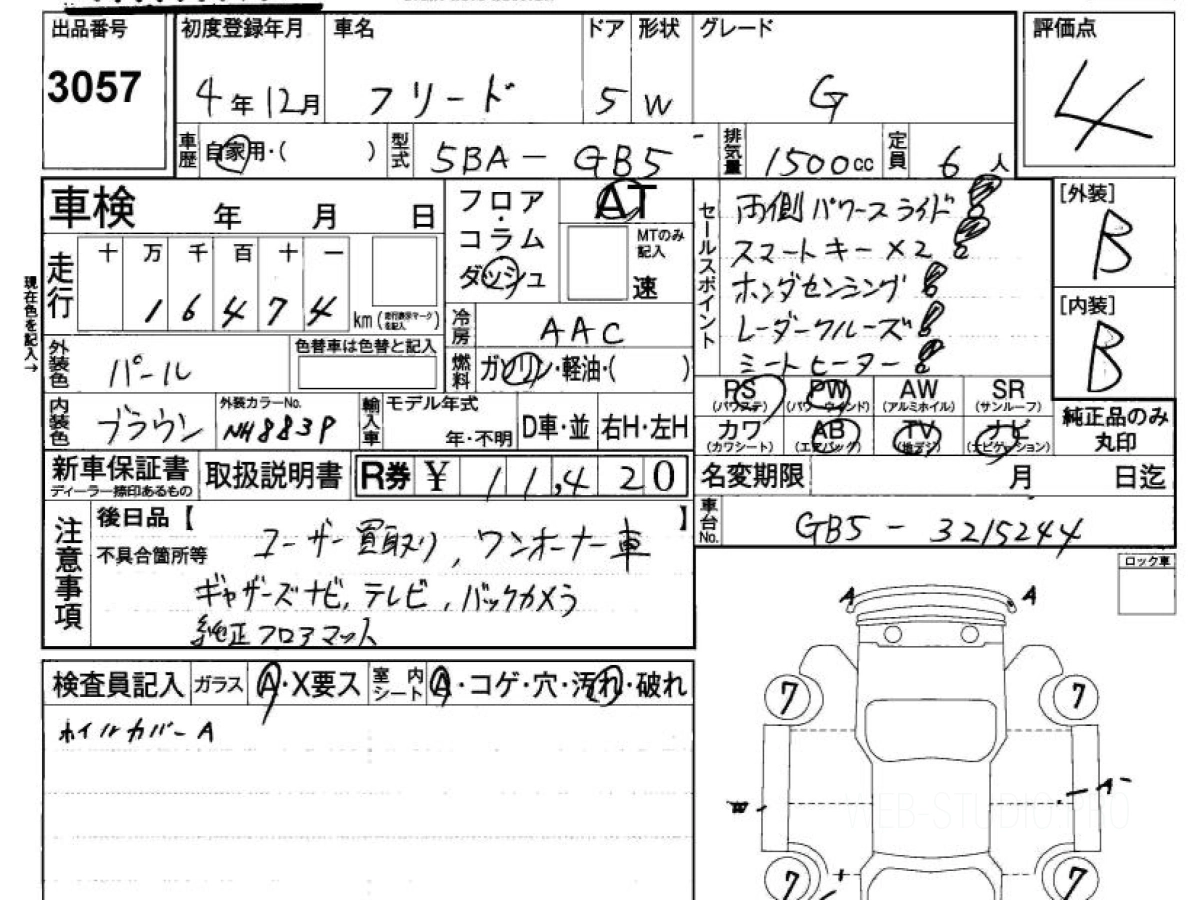 出品番号 初度登録年月 車名 ドア 形状 グレード 評価点
3057 4年12月 フリード 5 W G 4
車歴 自家用・( ) 型式 5BA - GB5 排気量 1500cc 定員 6人
車検 年 月 日 フロア・コラム ダッシュ AT MTのみ記入 速
セールスポイント 両側パワースライド
スマートキー×2
ホンダセンシング
レーダークルーズ
シートヒーター
[外装] B
[内装] B
現在色を記入→
走行 十 万 千 百 十 一
1 6 4 7 4 km(走行表示マークを記入)
冷房 AAC
外装色 パール 色替車は色替と記入 燃料 ガソリン・軽油・( )
PS (パワステ) PW (パワーウインド) AW (アルミホイル) SR (サンルーフ)
カワ (カワシート) AB (エアバッグ) TV (地デジ) ナビ (ナビゲーション)
純正品のみ丸印
内装色 ブラウン 外装カラーNo. NH883P 輸入車 モデル年式 年・不明 D車・並 右H・左H
新車保証書 ディーラー捺印あるもの 取扱説明書 R券 ¥ 11,420
名変期限 月 日迄
車台No. GB5 - 3215244
注意事項 後日品【 】
不具合箇所等 ユーザー買取り, ワンオーナー車
ギャザーズナビ, テレビ, バックカメラ
純正フロアマット
ロック車
検査員記入 ガラス A・X要ス 室内シート A・コゲ・穴・汚れ・破れ
ホイルカバーA
A A
7 7
A
7 7
WEB-STUDIO.PRO